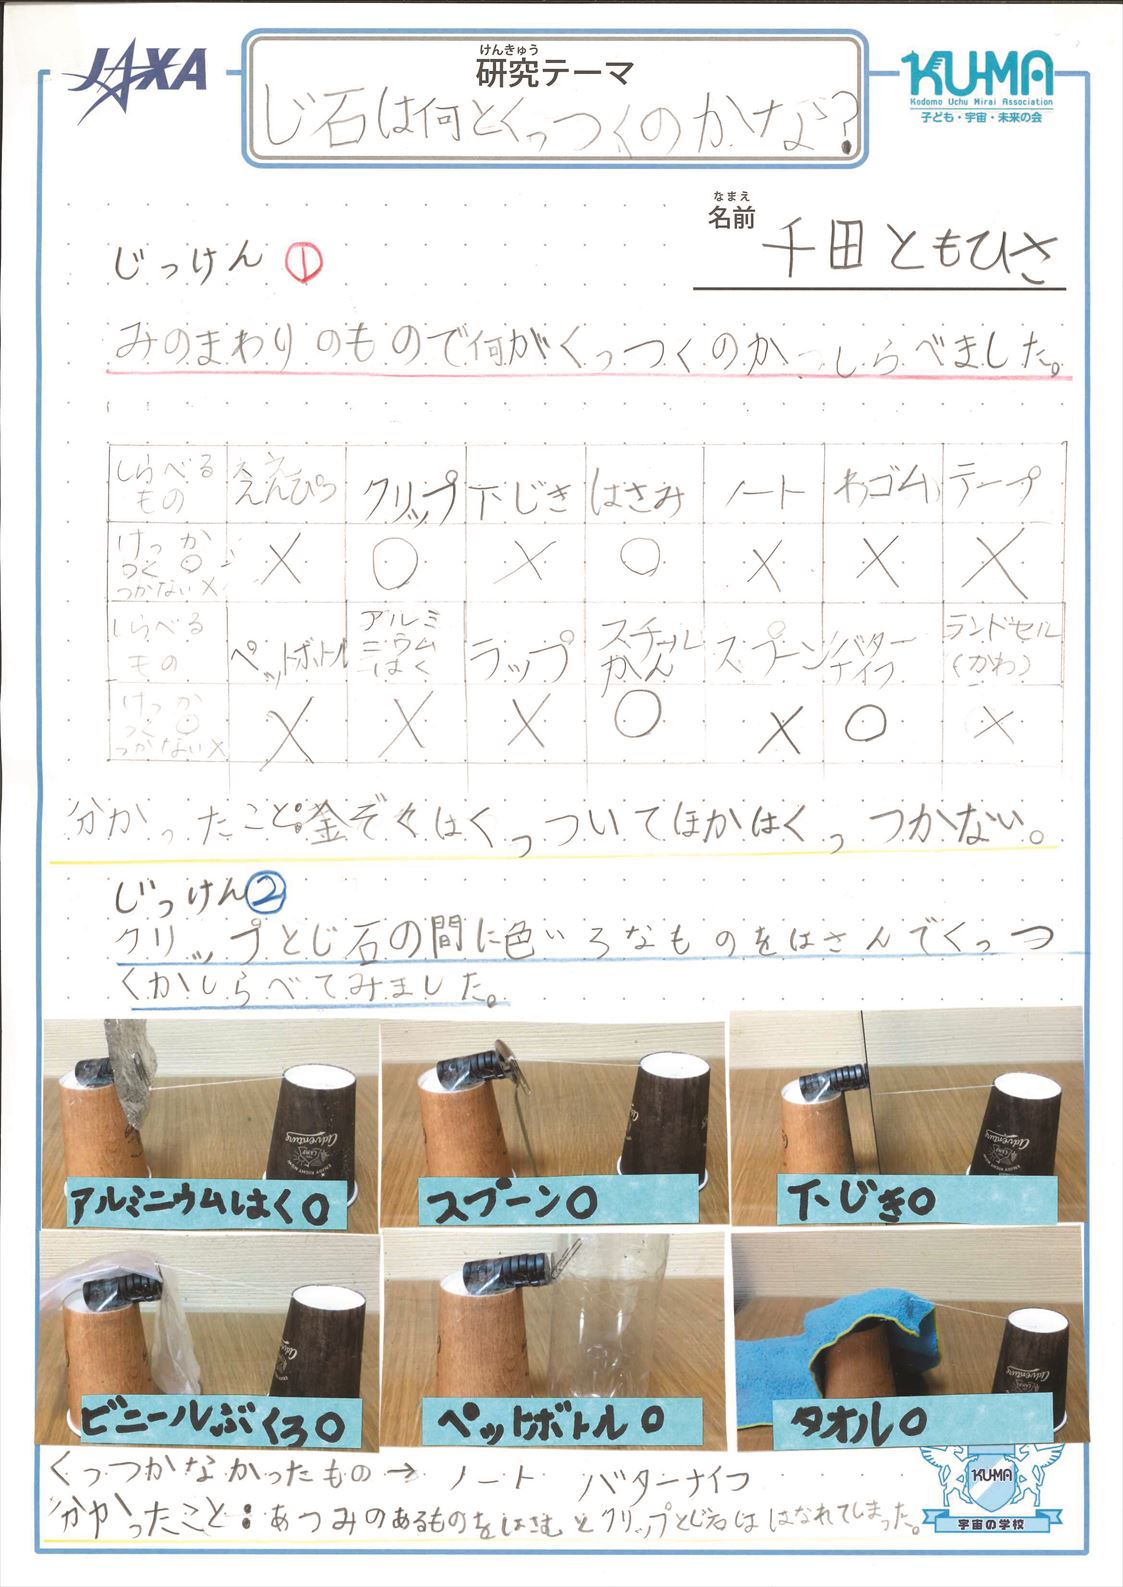 JAXA
けんきゅう
研究テーマ
じ石は何とくっつくのかな?
KU-MA
Kodomo Uchu Mirai Association
子ども・宇宙・未来の会
なまえ
名前
千田ともひさ
じっけん①
みのまわりのもので何がくっつくのかしらべました。
しらべるもの ええんぴつ クリップ 下じき はさみ ノート わゴム テープ
けっか つく○ つかない× × ○ × ○ × × ×
しらべるもの ペットボトル アルミニウムはく ラップ スチールかん スプーン バターナイフ ランドセル(かわ)
けっか つく○ つかない× × × × ○ × ○ ×
分かったこと:金ぞくはくっついてほかはくっつかない。
じっけん②
クリップとじ石の間に色いろなものをはさんでくっつ
くかしらべてみました。
アルミニウムはく○
スプーン○
下じき○
ビニールぶくろ○
ペットボトル○
タオル○
くっつかなかったもの→ ノート バターナイフ
分かったこと:あつみのあるものをはさむとクリップとじ石ははなれてしまった。
KU-MA
宇宙の学校